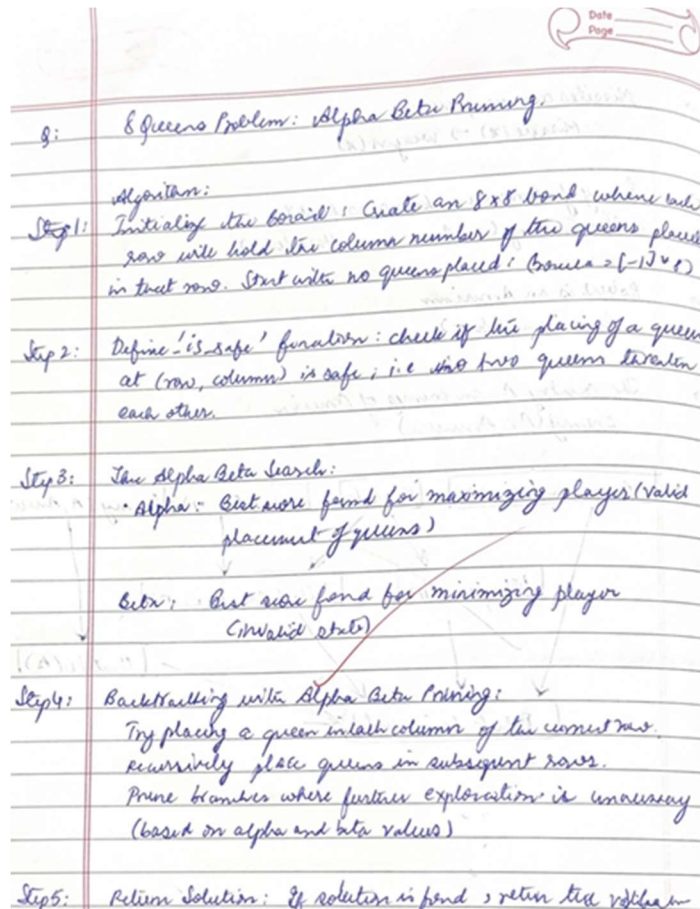 Date
Page
Q: 8 Queens Problem: Alpha Beta Pruning.
Algorithm:
Step 1: Initialize the board: Create an 8x8 board where each
row will hold the column number of the queens placed
in that row. Start with no queens placed: (board = [-1] * 8)
Step 2: Define 'is_safe' function: check if the placing of a queen
at (row, column) is safe; i.e no two queens threaten
each other.
Step 3: The Alpha Beta Search:
• Alpha: Best move found for maximizing player (valid
placement of queens)
Beta: Best move found for minimizing player
(invalid state)
Step 4: Backtracking with Alpha Beta Pruning:
Try placing a queen in each column of the current row.
recursively place queens in subsequent rows.
Prune branches where further exploration is unnecessary
(based on alpha and beta values)
Step 5: Return Solution: If solution is found, return the